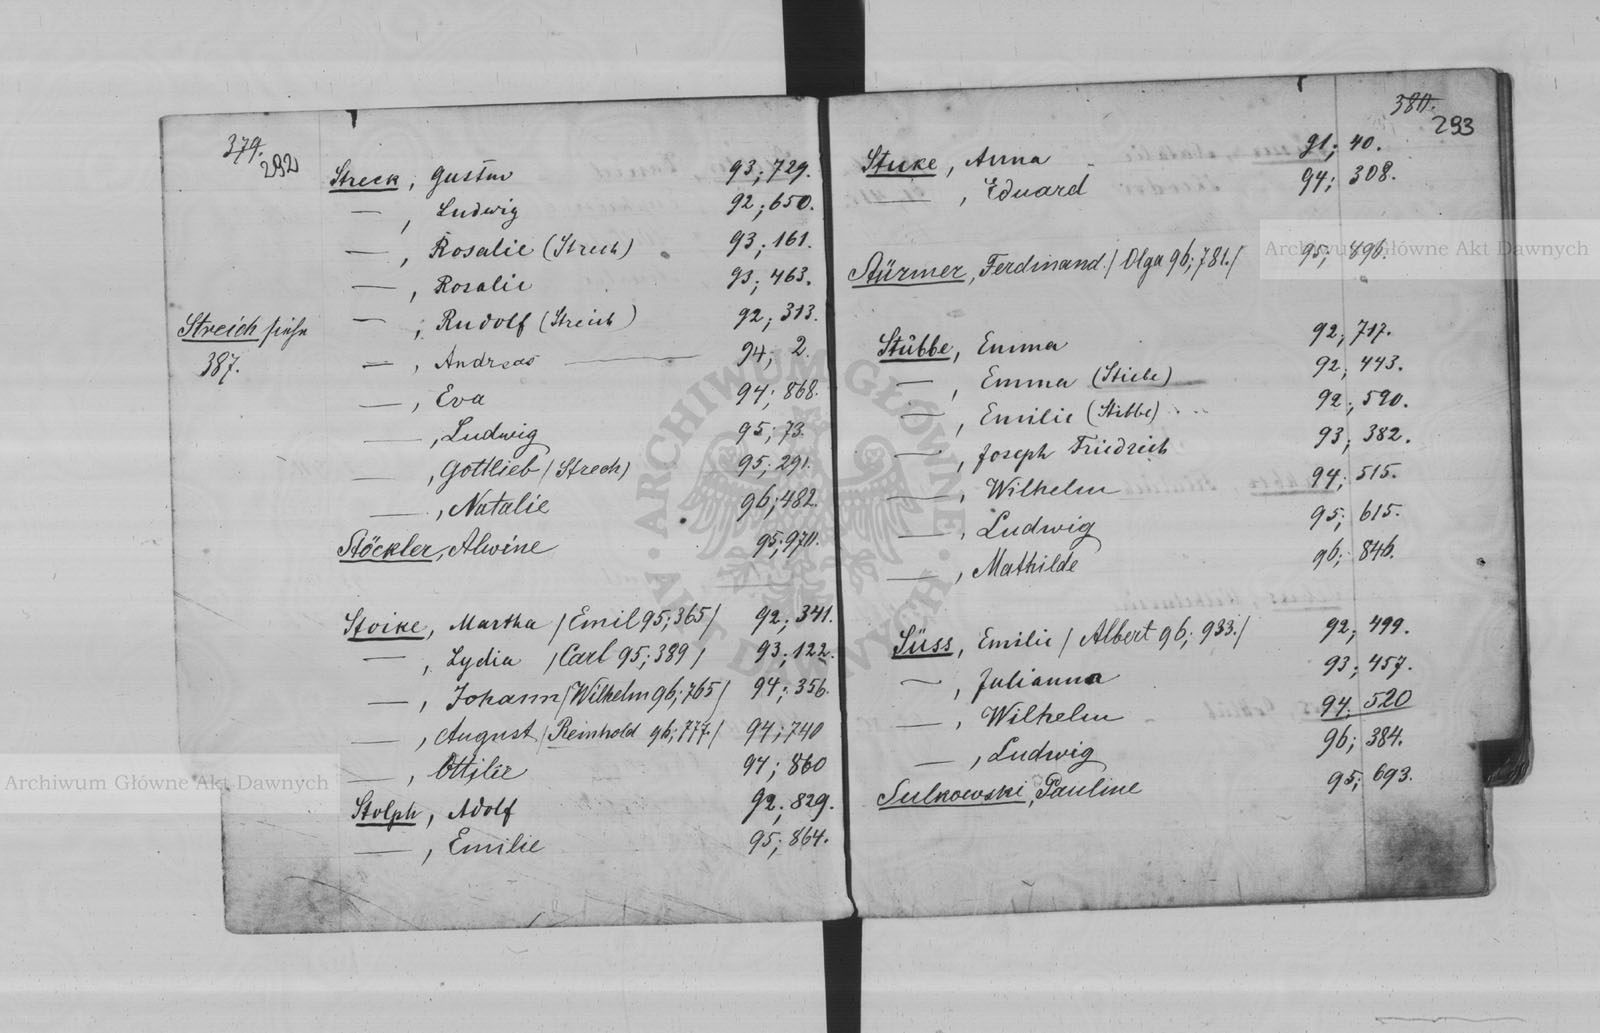 379.
292
Streck, Gustav 93; 729.
—, Ludwig 92; 650.
—, Rosalie (Strech) 93; 161.
—, Rosalie 93; 463.
Streich siehe
387.
—, Rudolf (Streich) 92; 313.
—, Andreas — 94; 2.
—, Eva 94; 868.
—, Ludwig 95; 73.
—, Gottlieb /Strech/ 95; 291.
—, Natalie 96; 482.
Stöckler, Alwine 95; 970.
Stoike, Martha /Emil 95; 365/ 92; 341.
—, Lydia /Carl 95; 389/ 93; 122.
—, Johann /Wilhelm 96; 765/ 94; 356.
—, August /Reinhold 96; 777./ 94; 740
—, Ottilie 94; 860
Stolph, Adolf 92; 829.
—, Emilie 95; 864.
380.
293
Stuke, Anna 91; 40.
—, Eduard 94; 308.
Stürmer, Ferdinand /Olga 96; 781./ 95; 896.
Stübbe, Emma 92; 717.
—, Emma (Stiebe) 92; 443.
—, Emilie (Stibbe) 92; 590.
—, Joseph Friedrich 93; 382.
—, Wilhelm 94; 515.
—, Ludwig 95; 615.
—, Mathilde 96; 846.
Süss, Emilie /Albert 96; 933./ 92; 499.
—, Julianna 93; 457.
—, Wilhelm 94; 520
—, Ludwig 96; 384.
Sulkowski, Pauline 95; 693.
Archiwum Główne Akt Dawnych
Archiwum Główne Akt Dawnych
ARCHIWUM GŁÓWNE AKT DAWNYCH